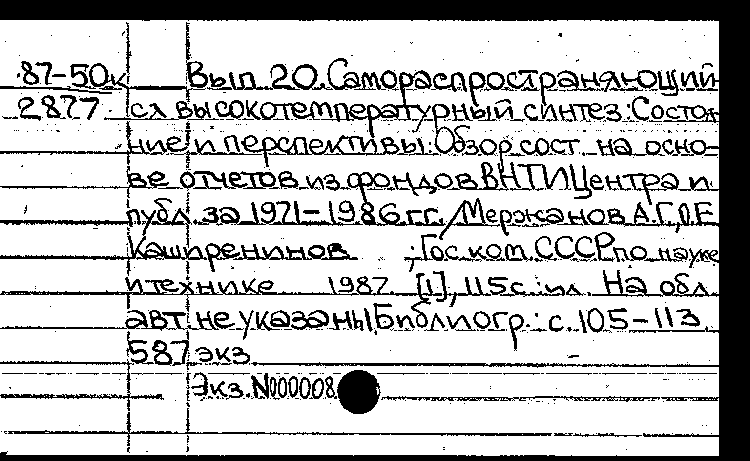 87-50к Вып. 20. Самораспространяющий
2877 ся высокотемпературный синтез: Состоя
ние и перспективы: Обзор сост. на осно-
ве отчетов из фондов ВНТИЦентра и
публ. за 1971-1986 гг. / Мержанов А.Г., О.Е
Каширенинов ; Гос. ком. СССР по науке
и технике 1987 [1], 115с.: ил. На обл.
авт. не указаны Библиогр.: с. 105-113.
587 экз.
Экз. N000008